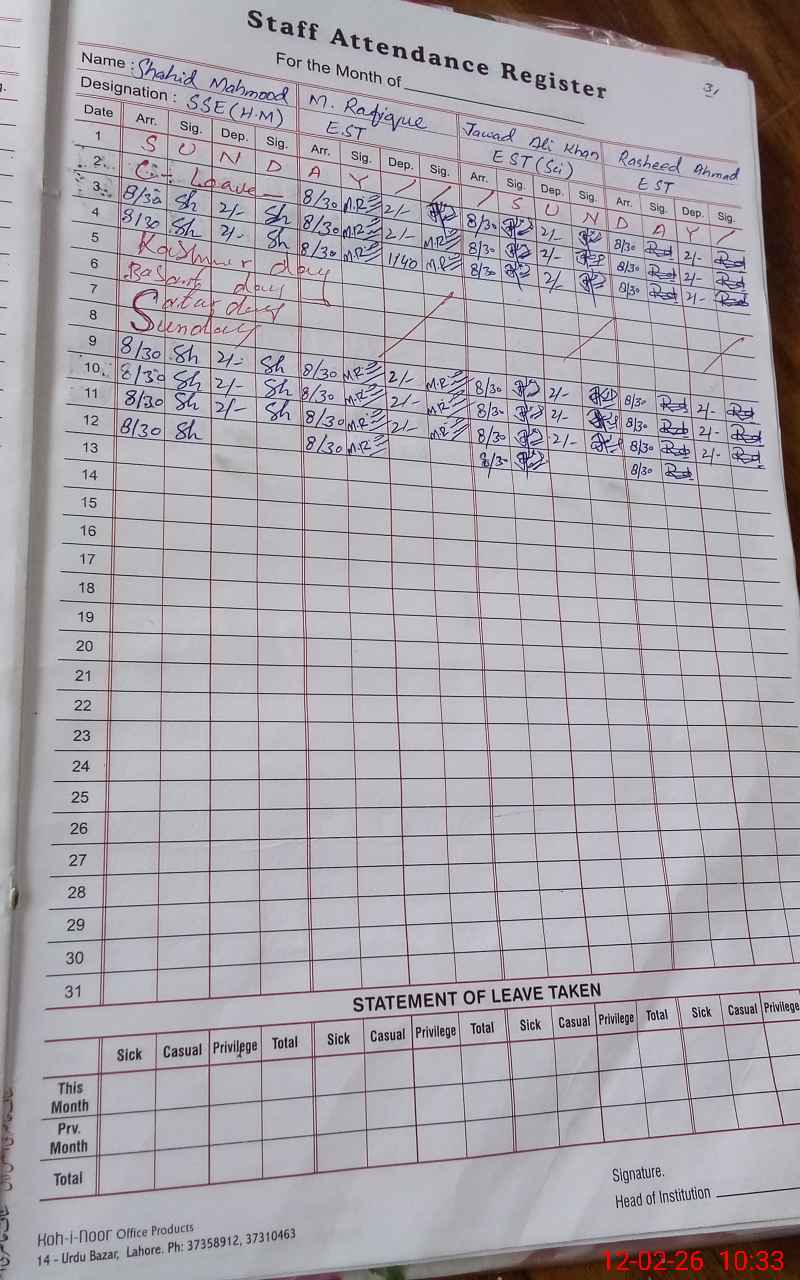 Staff Attendance Register
3,
For the Month of
Name : Shahid Mahmood M. Rafique Jawad Ali Khan Rasheed Ahmad
Designation : SSE (H.M) E.ST E ST (Sci) E ST
Date Arr. Sig. Dep. Sig. Arr. Sig. Dep. Sig. Arr. Sig. Dep. Sig. Arr. Sig. Dep. Sig.
1 S U N D A Y S U N D A Y
2 C- Leave 8/30 M.R 2/- 8/30 2/- 8/30 2/-
3 8/30 Sh 2/- Sh 8/30 M.R 2/- M.R 8/30 2/- 8/30 2/-
4 8/30 Sh 2/- Sh 8/30 M.R 1140 M.R 8/30 2/- 8/30 2/-
5 Kashmir day
6 Basant day
7 Satarday
8 Sunday
9 8/30 Sh 2/- Sh 8/30 M.R 2/- M.R 8/30 2/- 8/30 2/-
10 8/30 Sh 2/- Sh 8/30 M.R 2/- M.R 8/30 2/- 8/30 2/-
11 8/30 Sh 2/- Sh 8/30 M.R 2/- M.R 8/30 2/- 8/30 2/-
12 8/30 Sh 8/30 M.R 8/30 8/30
13
14
15
16
17
18
19
20
21
22
23
24
25
26
27
28
29
30
31
STATEMENT OF LEAVE TAKEN
Sick Casual Privilege Total Sick Casual Privilege Total Sick Casual Privilege Total Sick Casual Privilege
This Month
Prv. Month
Total
Signature.
Head of Institution
Koh-i-Noor Office Products
14 - Urdu Bazar, Lahore. Ph: 37358912, 37310463
12-02-26 10:33